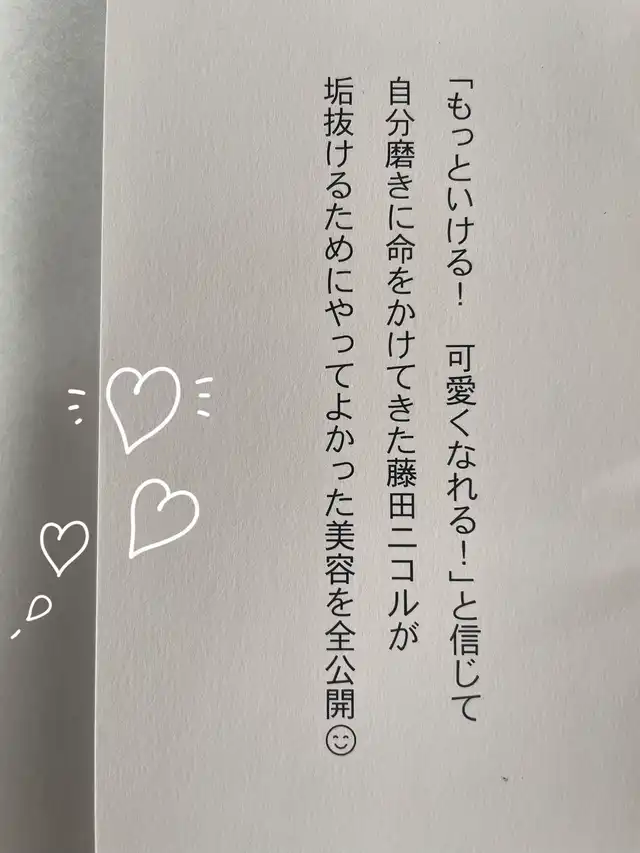 「もっといける！　可愛くなれる！」と信じて
自分磨きに命をかけてきた藤田ニコルが
垢抜けるためにやってよかった美容を全公開😊